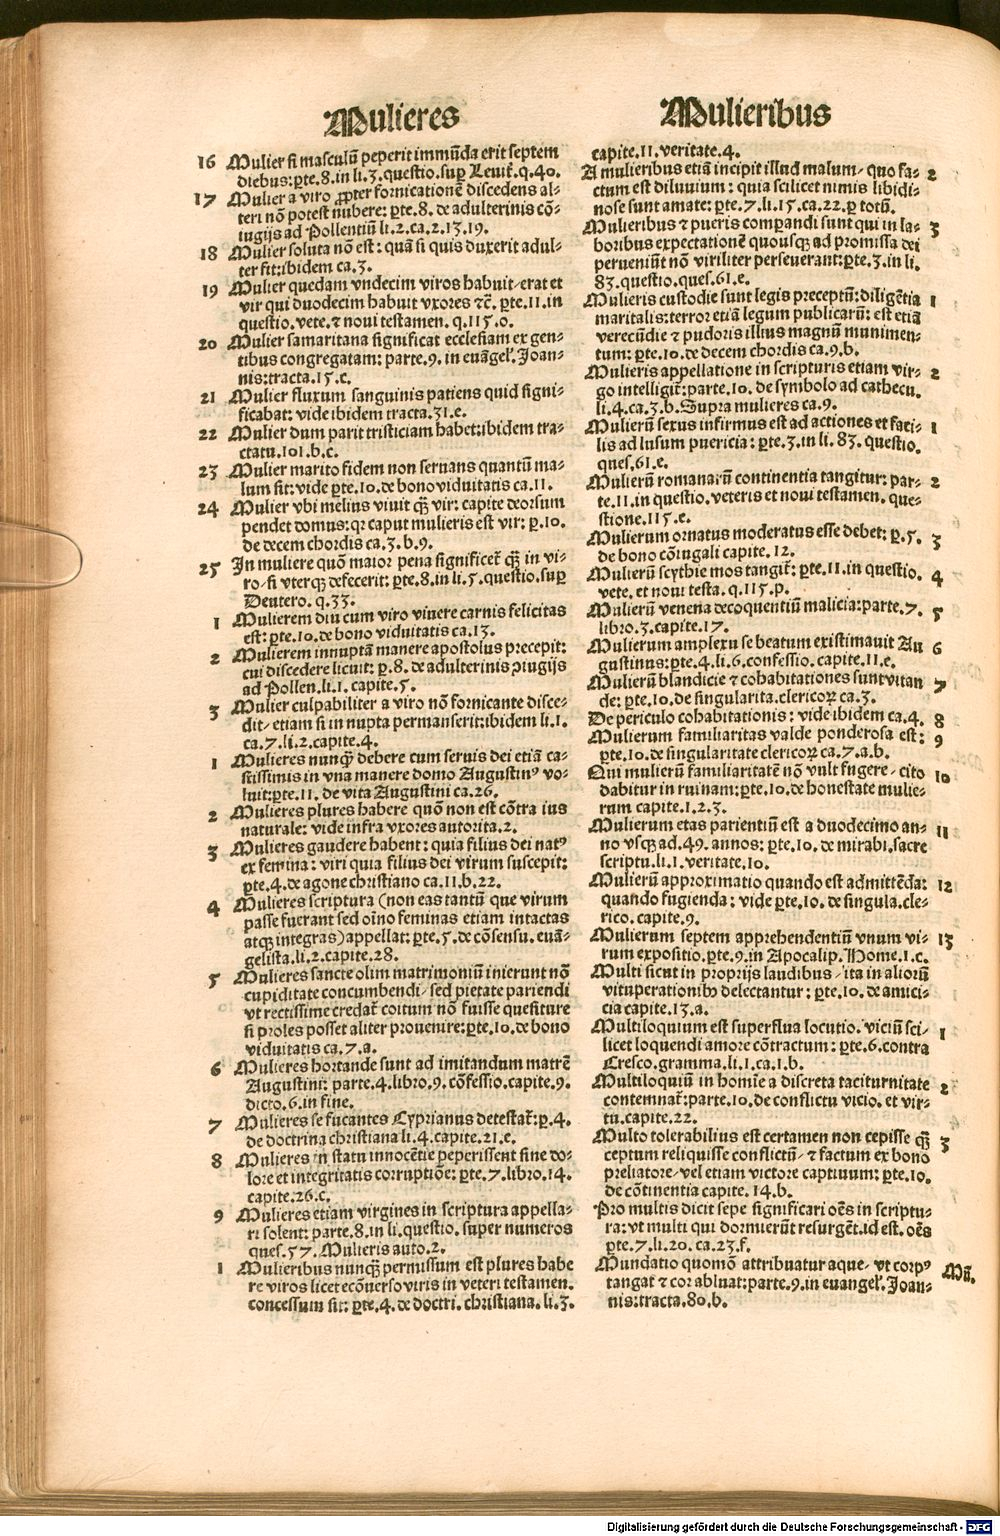 Mulieres
16 Mulier si masculũ peperit immũda erit septem
diebus: ꝑte.8. in li.3. questio. suꝑ Leuit̃. q.40.
17 Mulier a viro ꝓpter fornicationẽ discedens al-
teri nõ potest nubere: ꝑte.8. de adulterinis cõ-
iugijs ad Pollentiũ li.2.ca.2.13.19.
18 Mulier soluta nõ est: quã si quis duxerit adul-
ter fit: ibidem ca.3.
19 Mulier quedam vndecim viros habuit/ erat et
vir qui duodecim habuit vxores ⁊c̃. ꝑte.11. in
questio. vete. ⁊ noui testamen. q.115.o.
20 Mulier samaritana significat ecclesiam ex gen-
tibus congregatam: parte.9. in euãgel̃. Joan-
nis: tracta.15.c.
21 Mulier fluxum sanguinis patiens quid signi-
ficabat: vide ibidem tracta.31.e.
22 Mulier dum parit tristiciam habet: ibidem tra-
ctatu.101.b.c.
23 Mulier marito fidem non seruans quantũ ma-
lum sit: vide ꝑte.10. de bono viduitatis ca.11.
24 Mulier vbi melius viuit q̃ꝫ vir: capite deorsum
pendet domus: qꝛ caput mulieris est vir: p.10.
de decem chordis ca.3.b.9.
25 In muliere quõ maior pena significet̃ q̃ꝫ in vi-
ro/ si vterqꝫ defecerit: ꝑte.8. in li.5. questio. suꝑ
Deutero. q.33.
1 Mulierem diu cum viro viuere carnis felicitas
est: ꝑte.10. de bono viduitatis ca.13.
2 Mulierem innuptã manere apostolus precepit:
cui discedere licuit: p.8. de adulterinis ꝯiugijs
ad Pollen. li.1. capite.5.
3 Mulier culpabiliter a viro nõ fornicante disce-
dit/ etiam si in nupta permanserit: ibidem li.1.
ca.7. li.2. capite.4.
1 Mulieres nunq̃ꝫ debere cum seruis dei etiã ca-
stissimis in vna manere domo Augustinꝰ vo-
luit: ꝑte.11. de vita Augustini ca.26.
2 Mulieres plures habere quõ non est cõtra ius
naturale: vide infra vxores autorita.2.
3 Mulieres gaudere habent: quia filius dei natꝰ
ex femina: viri quia filius dei virum suscepit:
ꝑte.4. de agone christiano ca.11.b.22.
4 Mulieres scriptura (non eas tantũ que virum
passe fuerant sed oĩno feminas etiam intactas
atqꝫ integras) appellat: ꝑte.5. de cõsensu. euã-
gelista. li.2. capite.28.
5 Mulieres sancte olim matrimoniũ inierunt nõ
cupiditate concumbendi/ sed pietate pariendi
vt rectissime credat̃ coitum nõ fuisse quesiture
si proles posset aliter prouenire: ꝑte.10. de bono
viduitatis ca.7.a.
6 Mulieres hortande sunt ad imitandum matrẽ
Augustini: parte.4. libro.9. cõfessio. capite.9.
dicto.6. in fine.
7 Mulieres se fucantes Cyprianus detestat̃: p.4.
de doctrina christiana li.4. capite.21.e.
8 Mulieres in statu innocẽtie peperissent sine do-
lore et integritatis corruptiõe: ꝑte.7. libro.14.
capite.26.c.
9 Mulieres etiam virgines in scriptura appella-
ri solent: parte.8. in li. questio. super numeros
ques.57. Mulieris auto.2.
1 Mulieribus nunq̃ꝫ permissum est plures habe
re viros licet ecõuerso viris in veteri testamen.
concessum sit: ꝑte.4. de doctri. christiana. li.3.
Mulieribus
capite.11. veritate.4.
A mulieribus etiã incipit illud malum/ quo fa- 2
ctum est diluuium: quia scilicet nimis libidi-
nose sunt amate: ꝑte.7. li.15. ca.22. ꝑ totũ.
Mulieribus ⁊ pueris comꝑandi sunt qui in la- 3
boribus expectationẽ quousqꝫ ad promissa dei
perueniũt nõ viriliter perseuerant: ꝑte.3. in li.
83. questio. ques.61.e.
Mulieris custodie sunt legis preceptũ: diligẽtia 1
maritalis: terror etiã legum publicarũ: est etiã
verecũdie ⁊ pudoris illius magnũ munimen-
tum: ꝑte.10. de decem chordis ca.9.b.
Mulieris appellatione in scripturis etiam vir- 2
go intelligit̃: parte.10. de symbolo ad cathecu.
li.4. ca.3.b. Supra mulieres ca.9.
Mulierũ sexus infirmus est ad actiones et faci- 1
lis ad lusum puericia: ꝑte.3. in li. 83. questio.
ques.61.e.
Mulierũ romanarũ continentia tangitur: par- 2
te.11. in questio. veteris et noui testamen. que-
stione.115.e.
Mulierum ornatus moderatus esse debet: p.5. 3
de bono cõiugali capite.12.
Mulierũ scythie mos tangit̃: ꝑte.11. in questio. 4
vete. et noui testa. q.115.p.
Mulierũ venena decoquentiũ malicia: parte.7. 5
libro.3. capite.17.
Mulierum amplexu se beatum existimauit Au 6
gustinus: ꝑte.4. li.6. confessio. capite.11.e.
Mulierũ blandicie ⁊ cohabitationes sunt vitan 7
de: ꝑte.10. de singularita. clericoꝝ ca.3.
De periculo cohabitationis: vide ibidem ca.4. 8
Mulierum familiaritas valde ponderosa est: 9
ꝑte.10. de singularitate clericoꝝ ca.7.a.b.
Qui mulierũ familiaritatẽ nõ vult fugere/ cito 10
dabitur in ruinam: ꝑte.10. de honestate mulie-
rum capite.1.2.3.
Mulierum etas parientiũ est a duodecimo an- 11
no vsqꝫ ad.49. annos: ꝑte.10. de mirabi. sacre
scriptu. li.1. veritate.10.
Mulierũ approximatio quando est admittẽda: 12
quando fugienda: vide ꝑte.10. de singula. cle-
rico. capite.9.
Mulierum septem apprehendentiũ vnum vi- 13
rum expositio. ꝑte.9. in Apocalip. Home.1.c.
Multi sicut in proprijs laudibus/ ita in aliorũ
vituperationibꝫ delectantur: ꝑte.10. de amici-
cia capite.13.a.
Multiloquium est superflua locutio. viciũ sci- 1
licet loquendi amore cõtractum: ꝑte.6. contra
Cresco. gramma. li.1. ca.1.b.
Multiloquiũ in homĩe a discreta taciturnitate 2
contemnat̃: parte.10. de conflictu vicio. et vir-
tu. capite.22.
Multo tolerabilius est certamen non cepisse q̃ꝫ 3
ceptum reliquisse conflictũ/ ⁊ factum ex bono
preliatore/ vel etiam victore captiuum: ꝑte.10.
de cõtinentia capite.14.b.
Pro multis dicit sepe significari oẽs in scriptu-
ra: vt multi qui dormierũt resurgẽt. id est. oẽs
ꝑte.7. li.20. ca.23.f.
Mundatio quomõ attribuatur aque/ vt corpꝰ Mũ.
tangat ⁊ cor abluat: parte.9. in euangel̃. Joan-
nis: tracta.80.b.
Digitalisierung gefördert durch die Deutsche Forschungsgemeinschaft - DFG